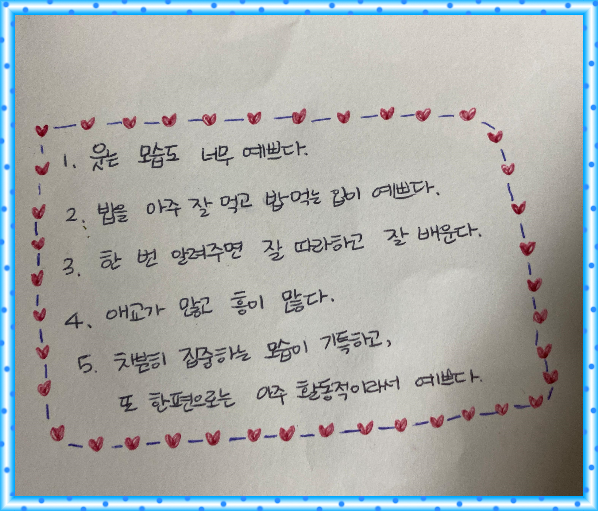 1. 웃는 모습도 너무 예쁘다.
2. 밥을 아주 잘 먹고 밥먹는 입이 예쁘다.
3. 한 번 알려주면 잘 따라하고 잘 배운다.
4. 애교가 많고 흥이 많다.
5. 차분히 집중하는 모습이 기특하고,
또 한편으로는 아주 활동적이라서 예쁘다.